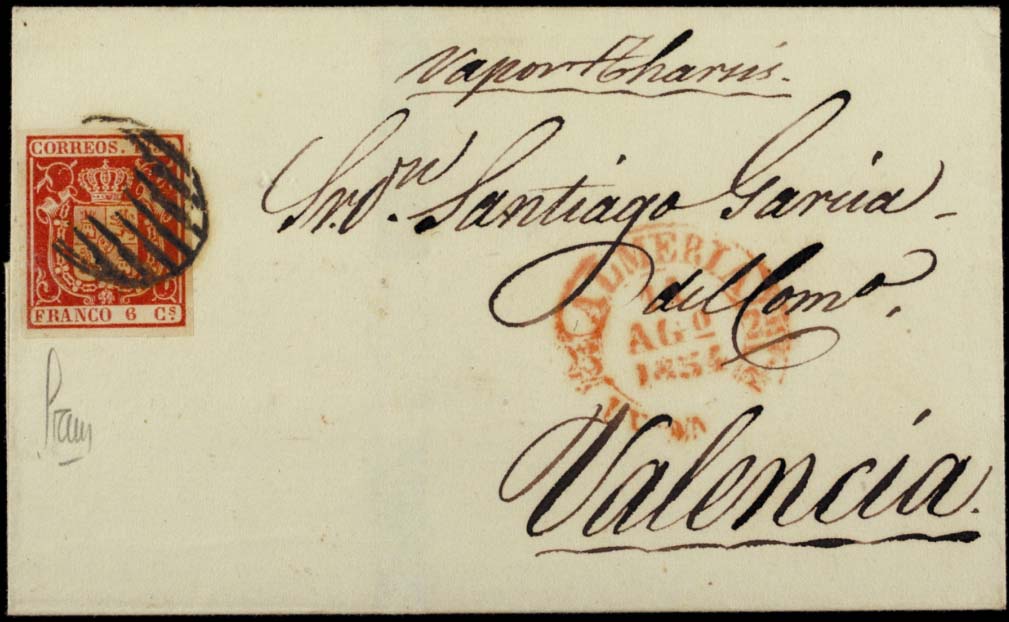 Vapor Tharsis.
CORREOS. 1854
Sr. Dn. Santiago Garcia
del Como.
ALMERIA
AGO
1854
FRANCO 6 Cs.
Valencia.